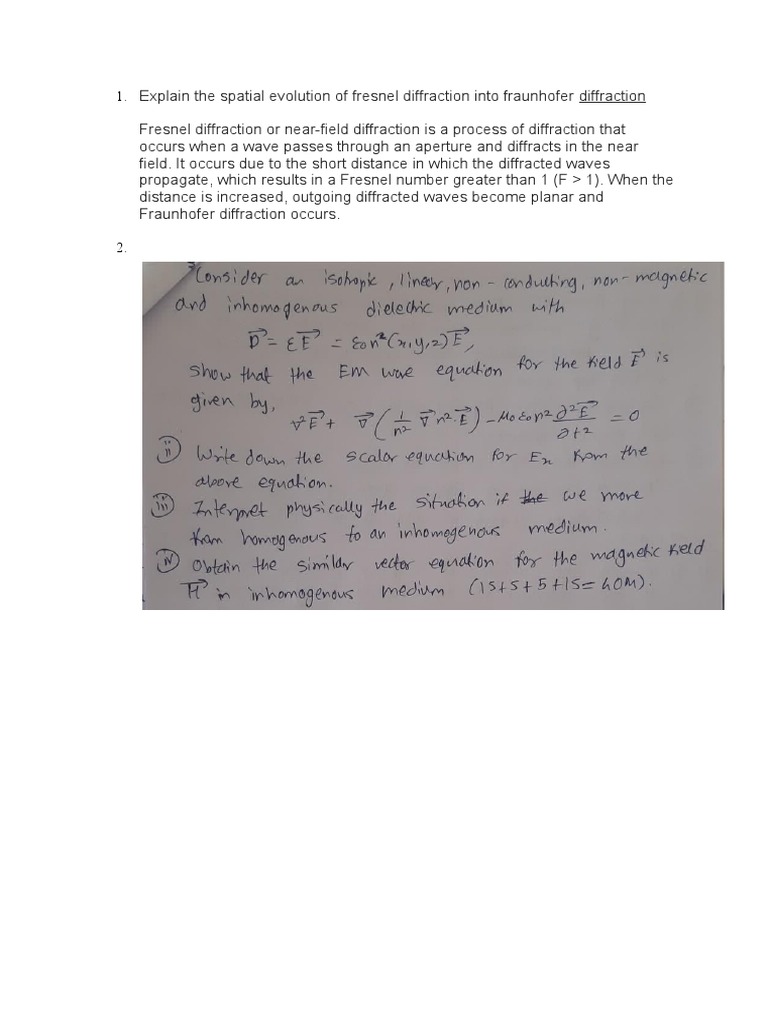 1. Explain the spatial evolution of fresnel diffraction into fraunhofer diffraction
Fresnel diffraction or near-field diffraction is a process of diffraction that
occurs when a wave passes through an aperture and diffracts in the near
field. It occurs due to the short distance in which the diffracted waves
propagate, which results in a Fresnel number greater than 1 (F > 1). When the
distance is increased, outgoing diffracted waves become planar and
Fraunhofer diffraction occurs.
2.
Consider an isotropic, linear, non-conducting, non-magnetic
and inhomogenous dielectric medium with
D⃗ = εE⃗ = ε0n²(x,y,z)E⃗,
show that the EM wave equation for the field E⃗ is
given by,
∇²E⃗ + ∇⃗(1/n² ∇⃗n²·E⃗) - μ0ε0n² ∂²E⃗/∂t² = 0
ii) Write down the scalar equation for Ex from the
above equation.
iii) Interpret physically the situation if we move
from homogenous to an inhomogenous medium.
iv) Obtain the similar vector equation for the magnetic field
H⃗ in inhomogenous medium (15+5+5+15=40M).